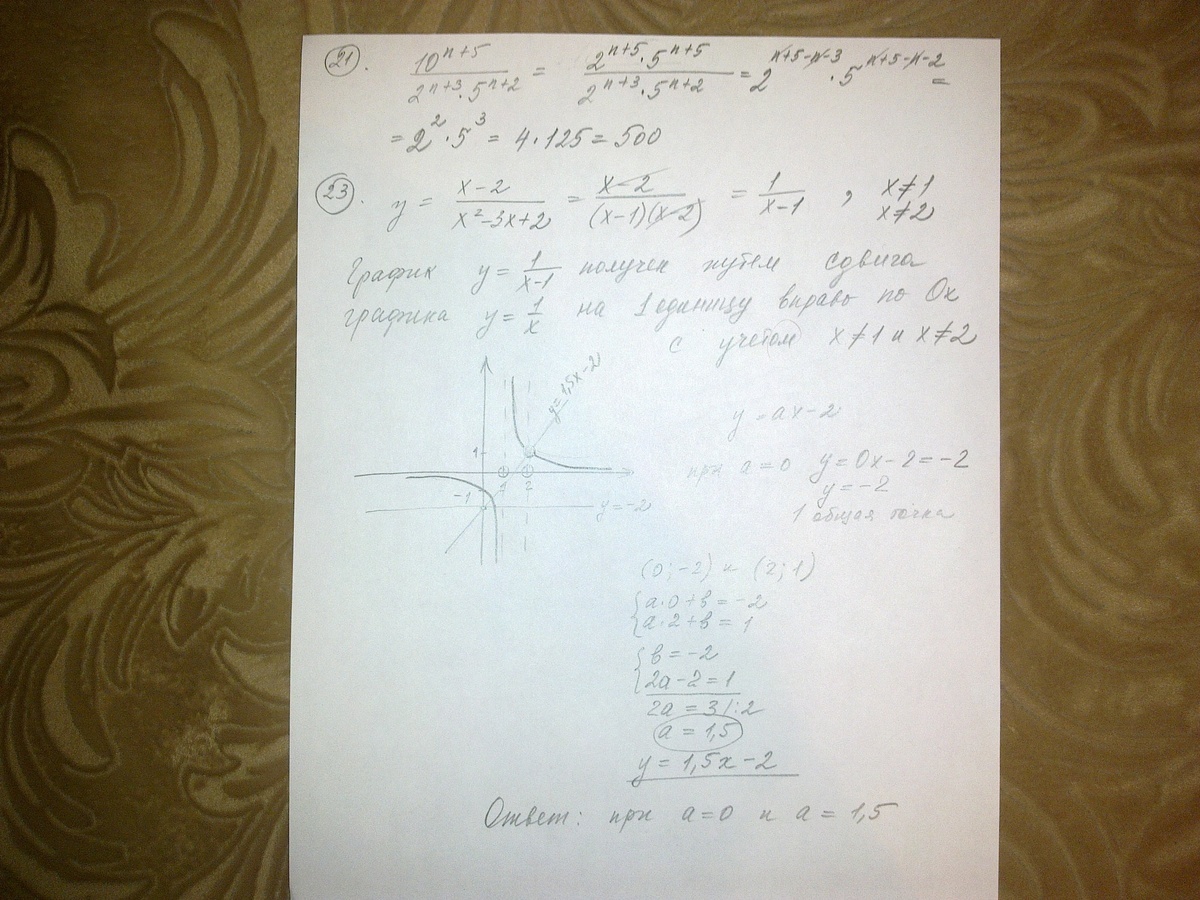 21. 10^(n+5) / (2^(n+3)·5^(n+2)) = (2^(n+5)·5^(n+5)) / (2^(n+3)·5^(n+2)) = 2^(n+5-n-3)·5^(n+5-n-2) =
= 2^2·5^3 = 4·125 = 500
23. y = (x-2) / (x²-3x+2) = (x-2) / ((x-1)(x-2)) = 1/(x-1), x≠1
x≠2
График y = 1/(x-1) получен путем сдвига
графика y = 1/x на 1 единицу вправо по Ox
с учетом x≠1 и x≠2
y=1,5x-2
1
1 2
-1
y=-2
y = ax-2
при a=0 y=0x-2=-2
y=-2
1 общая точка
(0;-2) и (2;1)
{a·0+b=-2
{a·2+b=1
{b=-2
{2a-2=1
2a=3 /:2
a=1,5
y=1,5x-2
Ответ: при a=0 и a=1,5